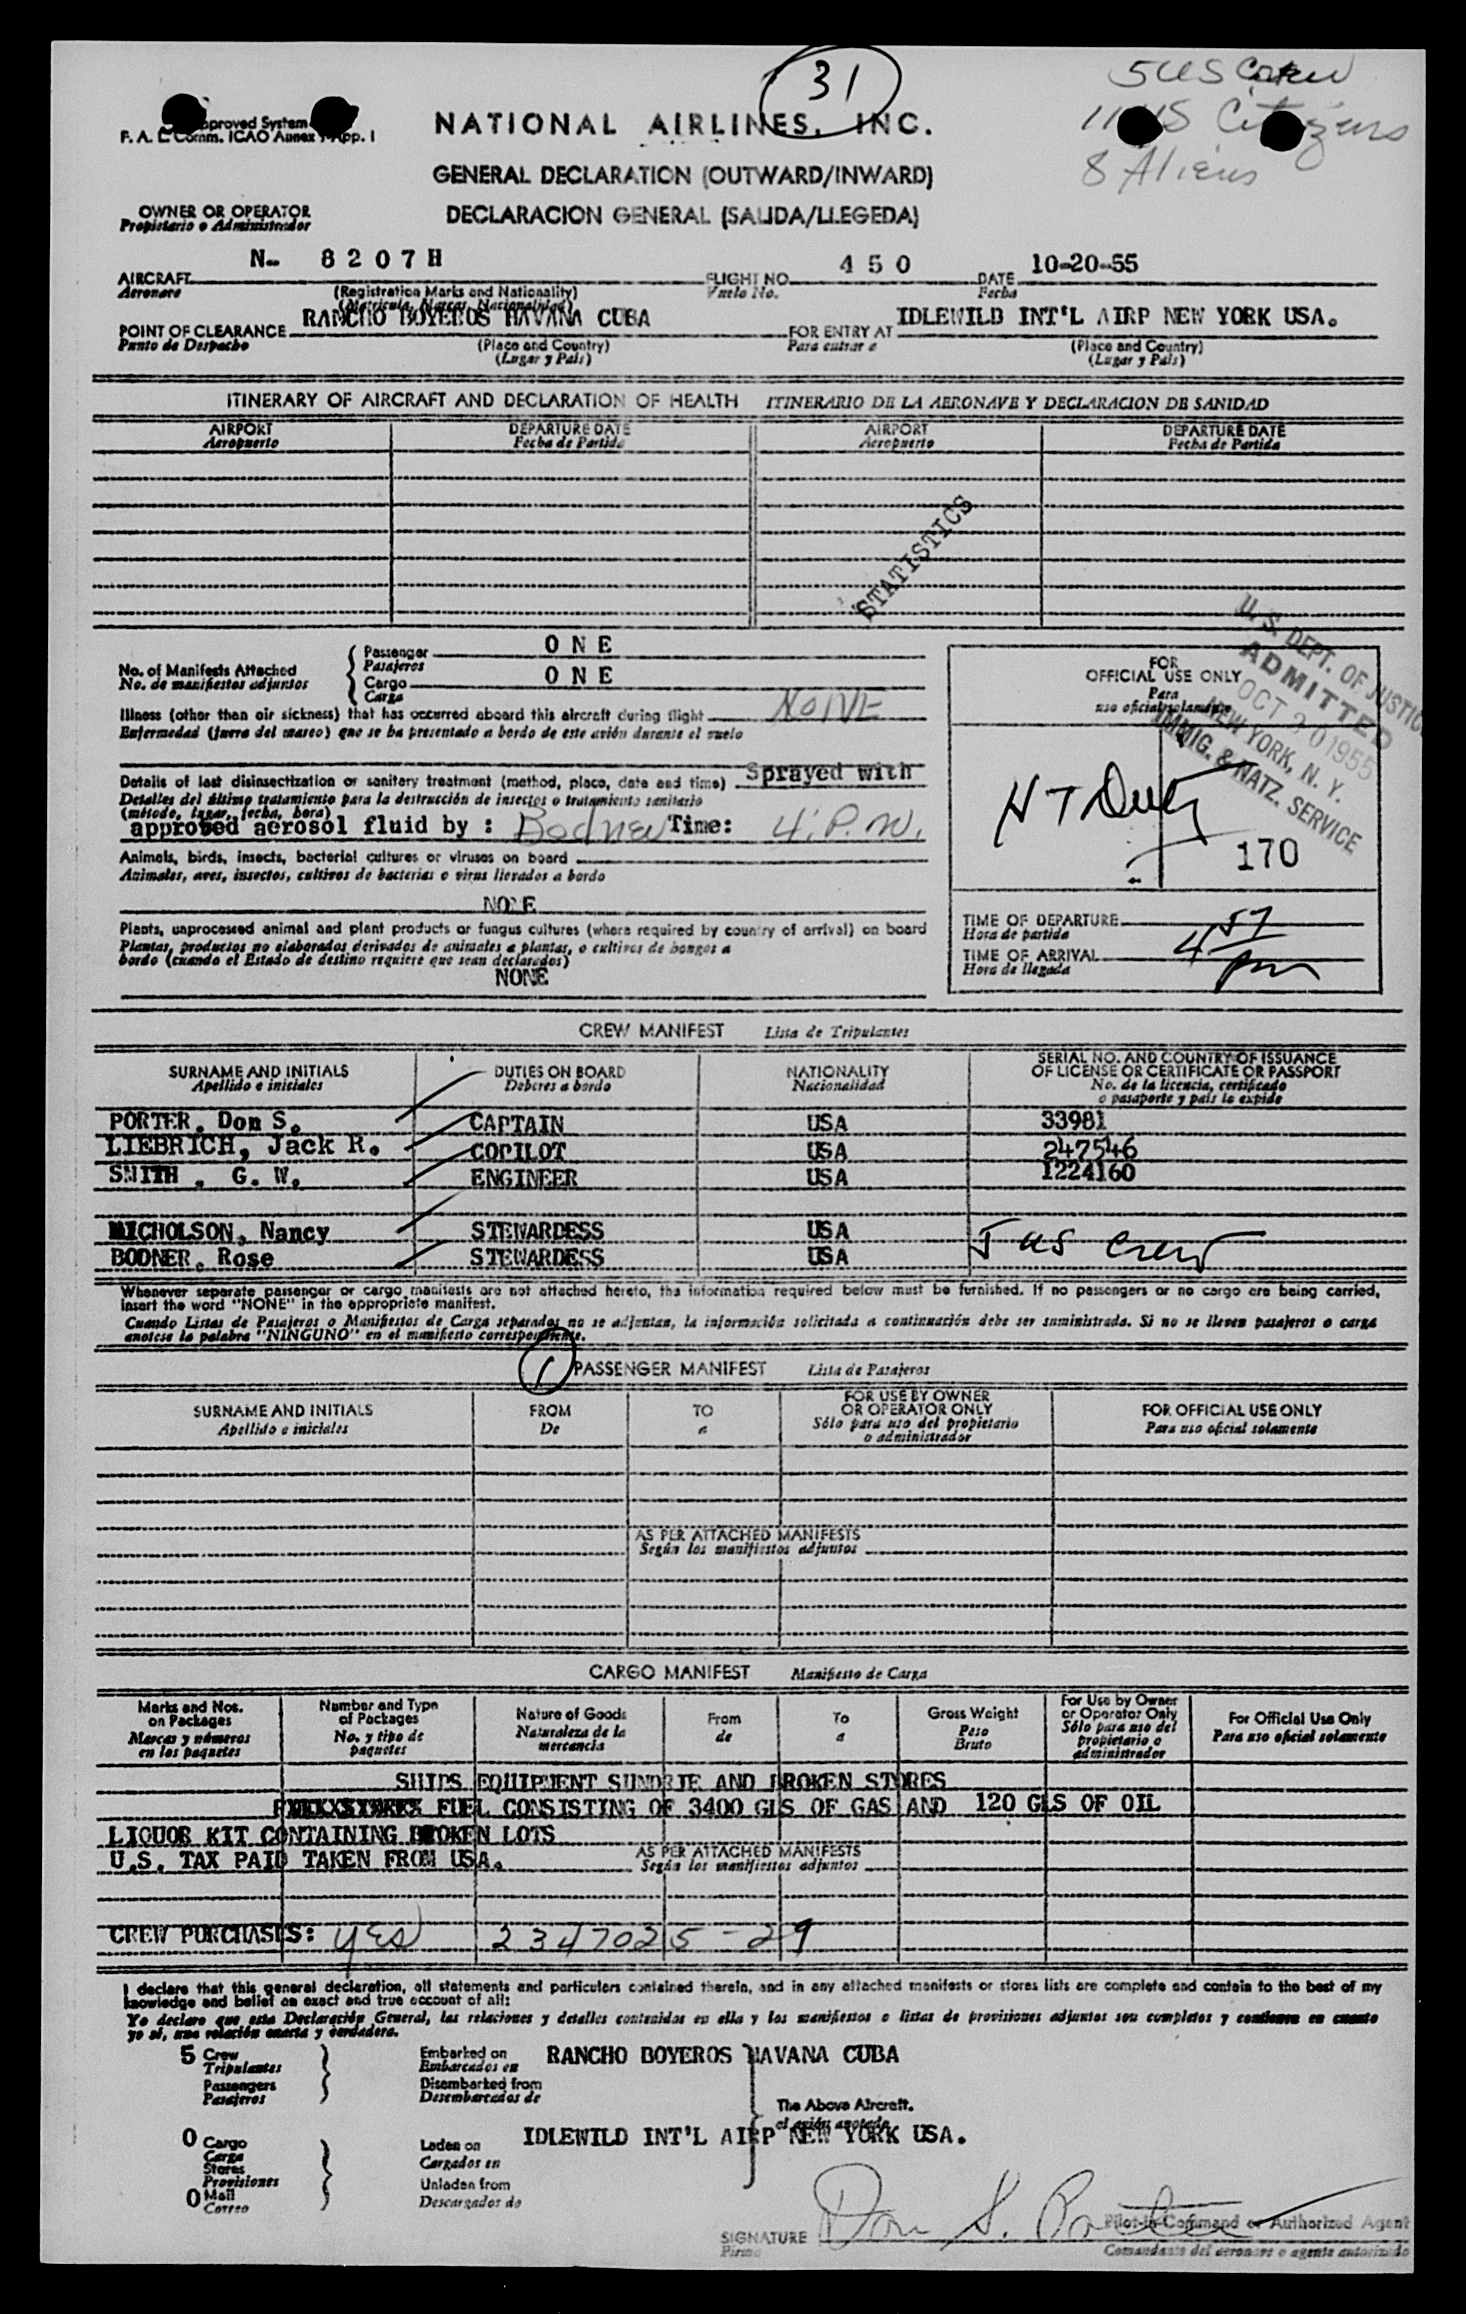 31
5 US Crew
11 US Citizens
8 Aliens
Approved System
F. A. L. Comm. ICAO Annex 9 App. I
NATIONAL AIRLINES, INC.
GENERAL DECLARATION (OUTWARD/INWARD)
DECLARACION GENERAL (SALIDA/LLEGEDA)
OWNER OR OPERATOR
Propietario o Administrador
AIRCRAFT N- 8207H FLIGHT NO. 450 DATE 10-20-55
Aeronave (Registration Marks and Nationality) Vuelo No. Fecha
(Matricula, Marcas, Nacionalidad)
POINT OF CLEARANCE RANCHO BOYEROS HAVANA CUBA FOR ENTRY AT IDLEWILD INT'L AIRP NEW YORK USA.
Punto de Despacho (Place and Country) Para entrar a (Place and Country)
(Lugar y País) (Lugar y País)
ITINERARY OF AIRCRAFT AND DECLARATION OF HEALTH ITINERARIO DE LA AERONAVE Y DECLARACION DE SANIDAD
AIRPORT DEPARTURE DATE AIRPORT DEPARTURE DATE
Aeropuerto Fecha de Partida Aeropuerto Fecha de Partida
STATISTICS
No. of Manifests Attached Passenger ONE
No. de manifiestos adjuntos Pasajeros
Cargo ONE
Carga
Illness (other than air sickness) that has occurred aboard this aircraft during flight NONE
Enfermedad (fuera del mareo) que se ha presentado a bordo de este avión durante el vuelo
Details of last disinsectization or sanitary treatment (method, place, date and time) Sprayed with
Detalles del último tratamiento para la destrucción de insectos o tratamiento sanitario
(método, lugar, fecha, hora)
approved aerosol fluid by : Bodner Time: 4 P.M.
Animals, birds, insects, bacterial cultures or viruses on board
Animales, aves, insectos, cultivos de bacterias o virus llevados a bordo
NONE
Plants, unprocessed animal and plant products or fungus cultures (where required by country of arrival) on board
Plantas, productos no elaborados derivados de animales a plantas, o cultivos de hongos a
bordo (cuando el Estado de destino requiere que sean declarados)
NONE
FOR
OFFICIAL USE ONLY
Para
uso oficial solamente
U. S. DEPT. OF JUSTICE
ADMITTED
OCT 20 1955
NEW YORK, N. Y.
IMMIG. & NATZ. SERVICE
170
TIME OF DEPARTURE
Hora de partida
TIME OF ARRIVAL 4 57 pm
Hora de llegada
CREW MANIFEST Lista de Tripulantes
SURNAME AND INITIALS DUTIES ON BOARD NATIONALITY SERIAL NO. AND COUNTRY OF ISSUANCE
Apellido e iniciales Deberes a bordo Nacionalidad OF LICENSE OR CERTIFICATE OR PASSPORT
No. de la licencia, certificado
o pasaporte y país lo expide
PORTER, Don S. CAPTAIN USA 33981
LIEBRICH, Jack R. COPILOT USA 247546
SMITH , G. W. ENGINEER USA 1224160
NICHOLSON, Nancy STEWARDESS USA
BODNER, Rose STEWARDESS USA 5 US Crew
Whenever separate passenger or cargo manifests are not attached hereto, the information required below must be furnished. If no passengers or no cargo are being carried,
insert the word "NONE" in the appropriate manifest.
Cuando Listas de Pasajeros o Manifiestos de Carga separados no se adjuntan, la información solicitada a continuación debe ser suministrada. Si no se lleven pasajeros o carga
anotese la palabra "NINGUNO" en el manifiesto correspondiente.
1
PASSENGER MANIFEST Lista de Pasajeros
SURNAME AND INITIALS FROM TO FOR USE BY OWNER FOR OFFICIAL USE ONLY
Apellido e iniciales De a OR OPERATOR ONLY Para uso oficial solamente
Sólo para uso del propietario
o administrador
AS PER ATTACHED MANIFESTS
Según los manifiestos adjuntos
CARGO MANIFEST Manifiesto de Carga
Marks and Nos. Number and Type Nature of Goods From To Gross Weight For Use by Owner For Official Use Only
on Packages of Packages Naturaleza de la de a Peso or Operator Only Para uso oficial solamente
Marcas y números No. y tipo de mercancía Bruto Sólo para uso del
en los paquetes paquetes propietario o
administrador
SHIPS EQUIPMENT SUNDRIE AND BROKEN STORES
FUEL CONSISTING OF 3400 GLS OF GAS AND 120 GLS OF OIL
LIQUOR KIT CONTAINING BROKEN LOTS
U.S. TAX PAID TAKEN FROM USA. AS PER ATTACHED MANIFESTS
Según los manifiestos adjuntos
CREW PURCHASES: yes 2347025-29
I declare that this general declaration, all statements and particulars contained therein, and in any attached manifests or stores lists are complete and contain to the best of my
knowledge and belief an exact and true account of all:
Yo declaro que esta Declaración General, las relaciones y detalles contenidas en ella y los manifiestos o listas de provisiones adjuntos son completos y contienen en cuanto
yo sé, una relación exacta y verdadera.
5 Crew Embarked on RANCHO BOYEROS HAVANA CUBA
Tripulantes Embarcados en
Passengers Disembarked from
Pasajeros Desembarcados de
The Above Aircraft.
el avión anotado
0 Cargo Laden on IDLEWILD INT'L AIRP NEW YORK USA.
Carga Cargados en
Stores
Provisiones Unladen from
0 Mail Descargados de
Correo
SIGNATURE Don S. Porter Pilot-in-Command or Authorized Agent
Firma Comandante del aeronave o agente autorizado